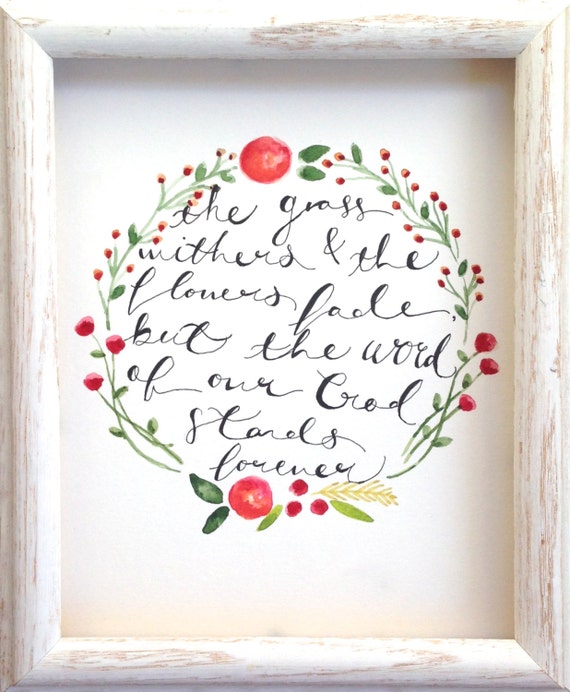 the grass
withers & the
flowers fade,
but the word
of our God
stands
forever